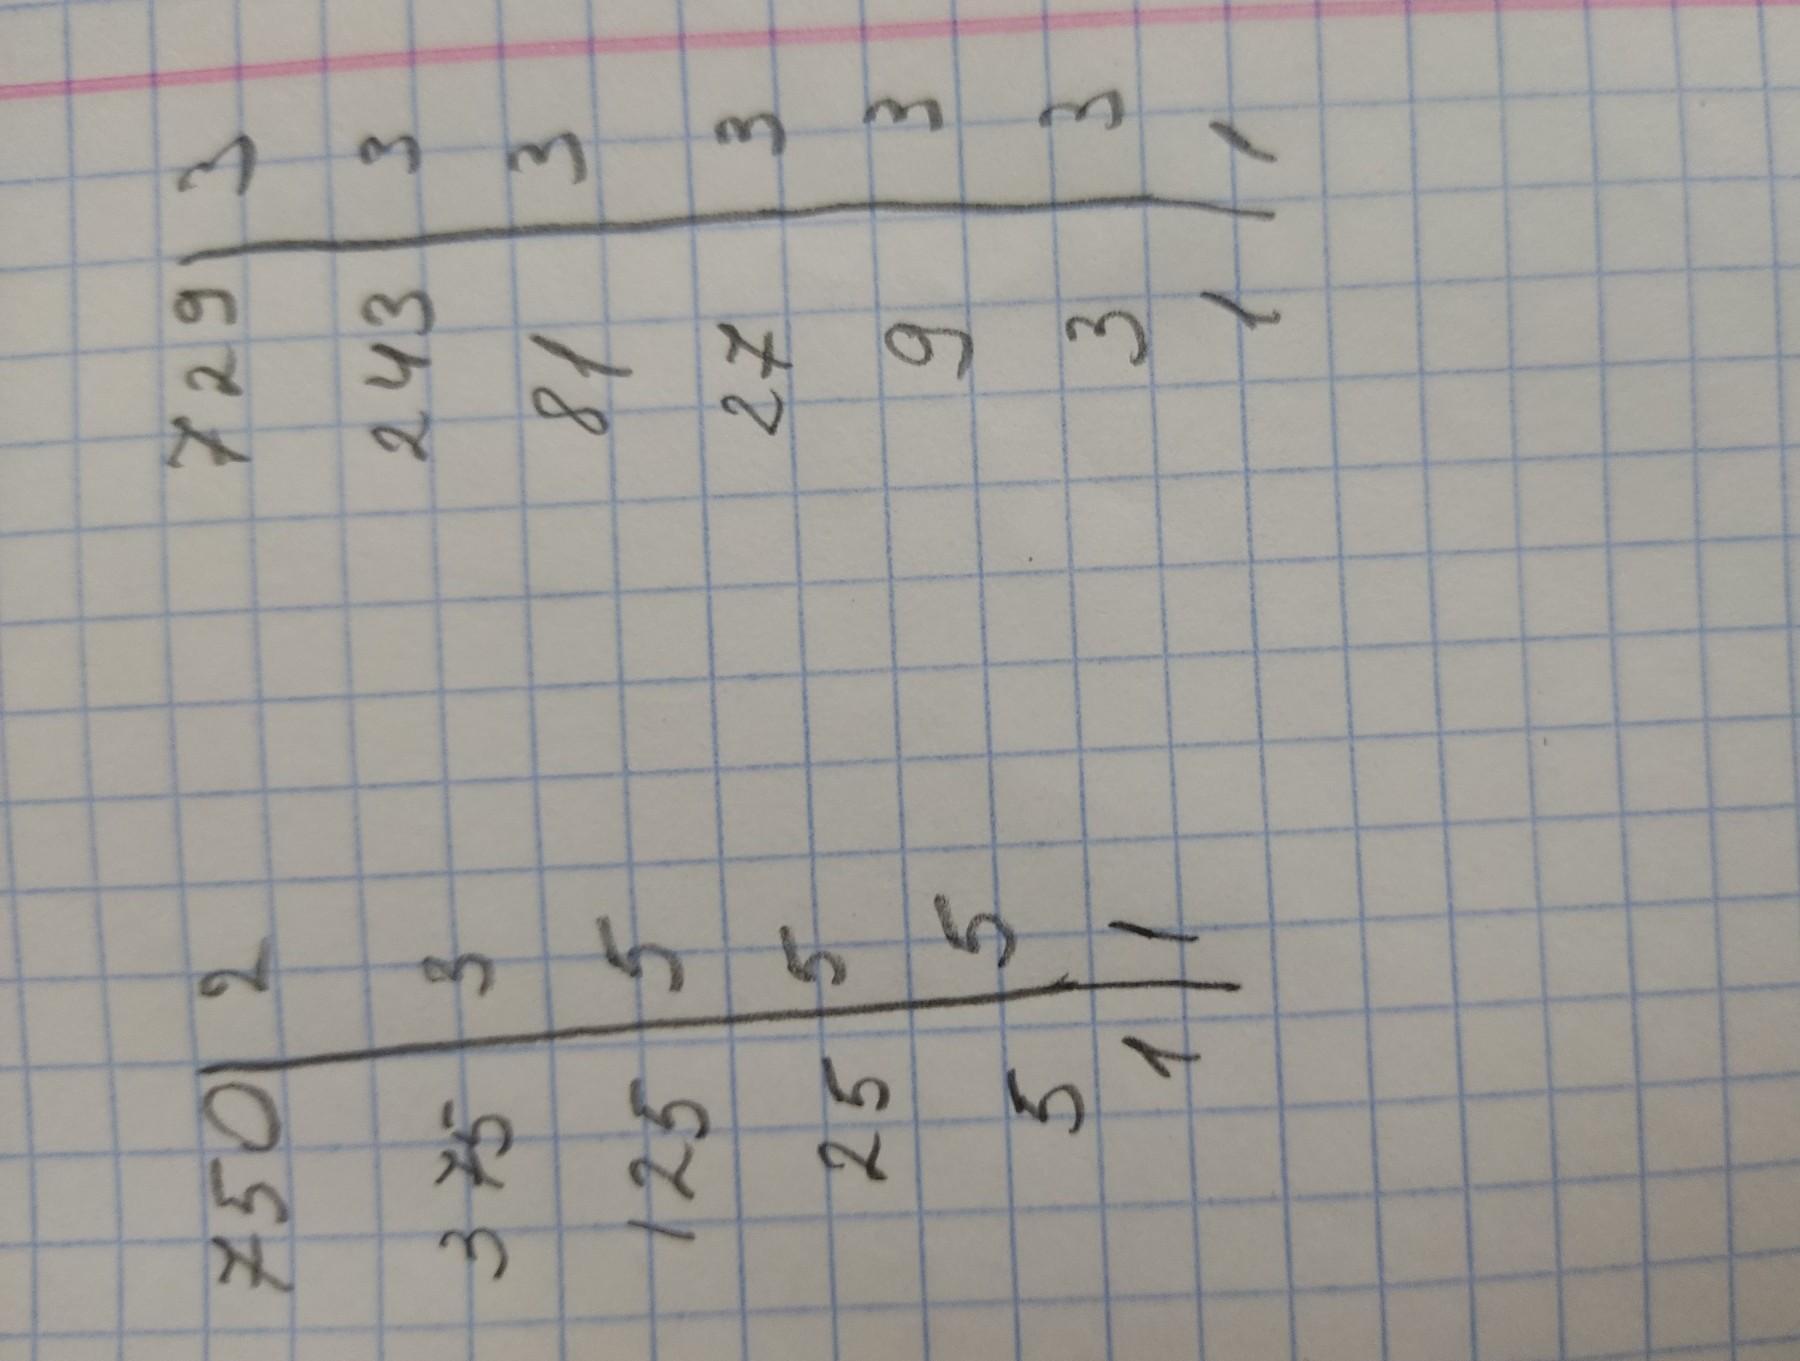 750 | 2
375 | 3
125 | 5
25 | 5
5 | 5
1 | 1
729 | 3
243 | 3
81 | 3
27 | 3
9 | 3
3 | 3
1 | 1